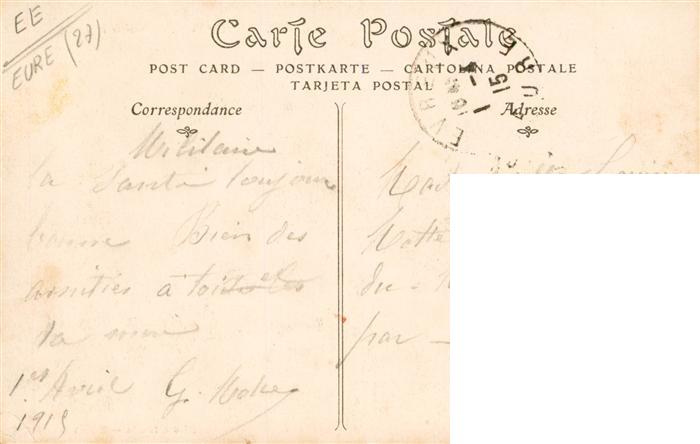 EE
EURE (27)
Carte Postale
POST CARD — POSTKARTE — CARTOLINA POSTALE
TARJETA POSTAL
Correspondance
Adresse
EVRE
15
EURE
Militaire
la Santé toujours
bonne Bien des
amitiés à toi
ta mère
1er Avril G.
1915
Notte
du -
par -